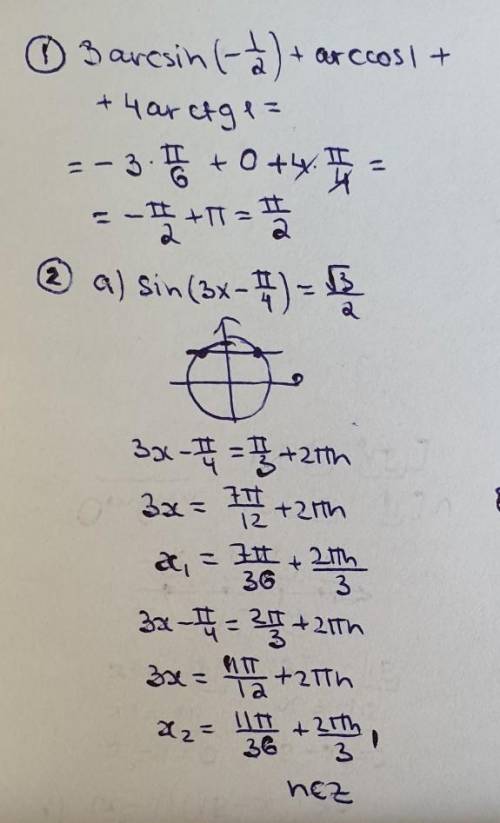 ① 3 arcsin(-1/2) + arccos1 +
+ 4arctg1 =
= - 3 · π/6 + 0 + 4 · π/4 =
= - π/2 + π = π/2
② a) sin(3x - π/4) = √3/2
3x - π/4 = π/3 + 2πn
3x = 7π/12 + 2πn
x₁ = 7π/36 + 2πn/3
3x - π/4 = 2π/3 + 2πn
3x = 11π/12 + 2πn
x₂ = 11π/36 + 2πn/3,
n∈Z